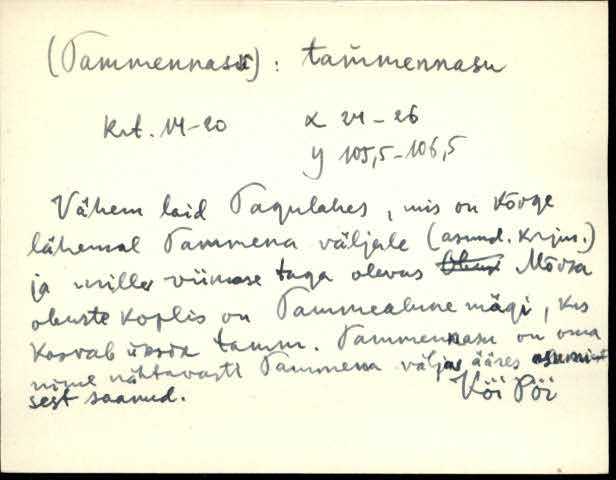 (Tammennasu) : tammennasu
Krt. 14-20 x 24-26
y 105,5-106,5
Vähem laid Tagulahes, mis on kõvge
lähemal Tammena väljale (asund. Krjus.)
ja mille viimase taga olevas Mõvsa
obuste koplis on Tammealune mägi, kus
kasvab üksik tamm. Tammennasu on oma
nime nähtavasti Tammena välja ääres asumi-
sest saanud. Köi Pöi